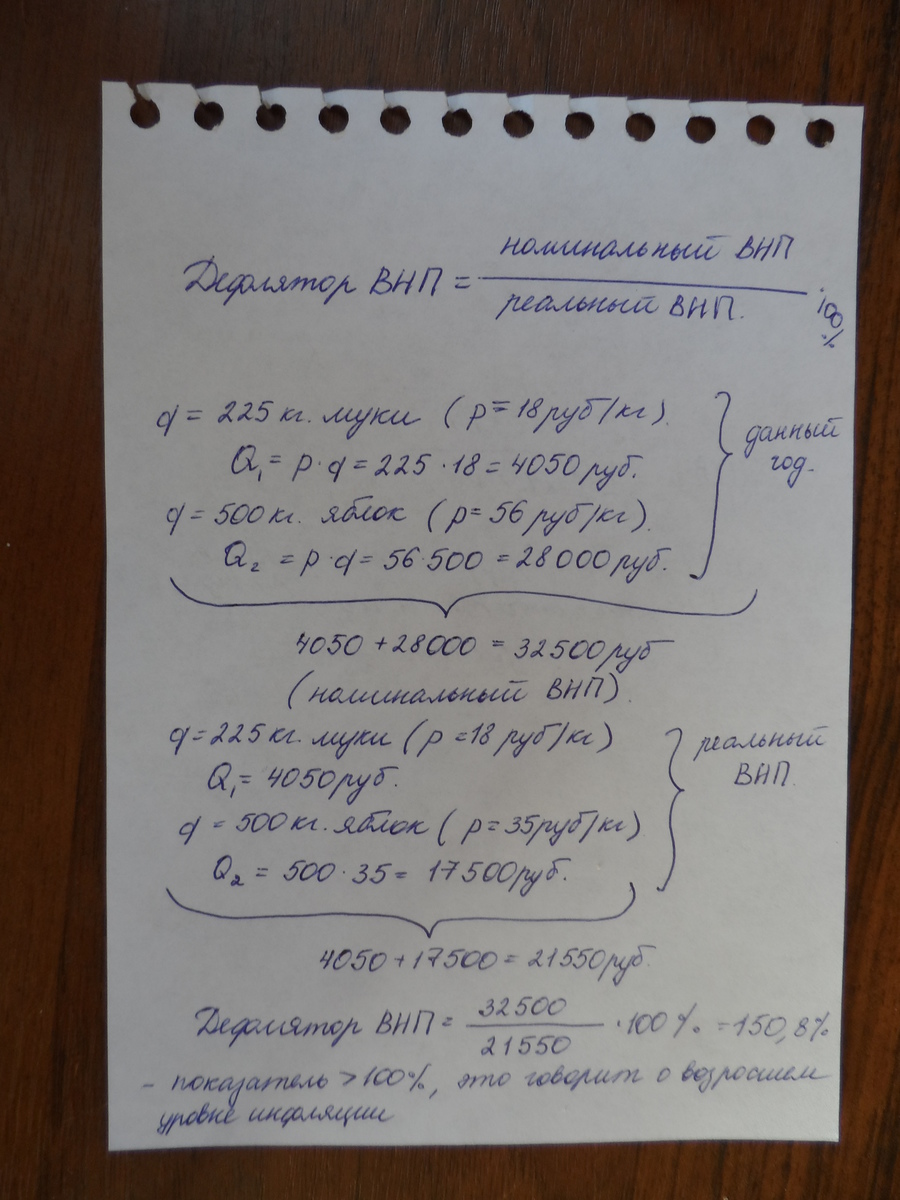 номинальный ВНП
Дефлятор ВНП = ─────────── · 100 %
реальный ВНП.
q = 225 кг. муки ( p = 18 руб/кг).
Q₁ = p · q = 225 · 18 = 4050 руб.
q = 500 кг. яблок ( p = 56 руб/кг).
Q₂ = p · q = 56 · 500 = 28000 руб.
данный
год.
4050 + 28000 = 32500 руб
(номинальный ВНП).
q = 225 кг. муки ( p = 18 руб/кг)
Q₁ = 4050 руб.
q = 500 кг. яблок ( p = 35 руб/кг)
Q₂ = 500 · 35 = 17500 руб.
реальный
ВНП.
4050 + 17500 = 21550 руб.
32500
Дефлятор ВНП = ─────── · 100 % = 150,8%
21550
- показатель > 100%, это говорит о возросшем
уровне инфляции